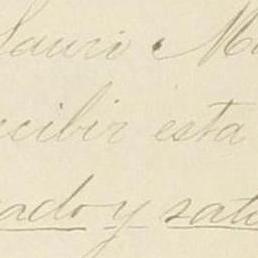 Lauri Ma
ecibir esta
ado y sati